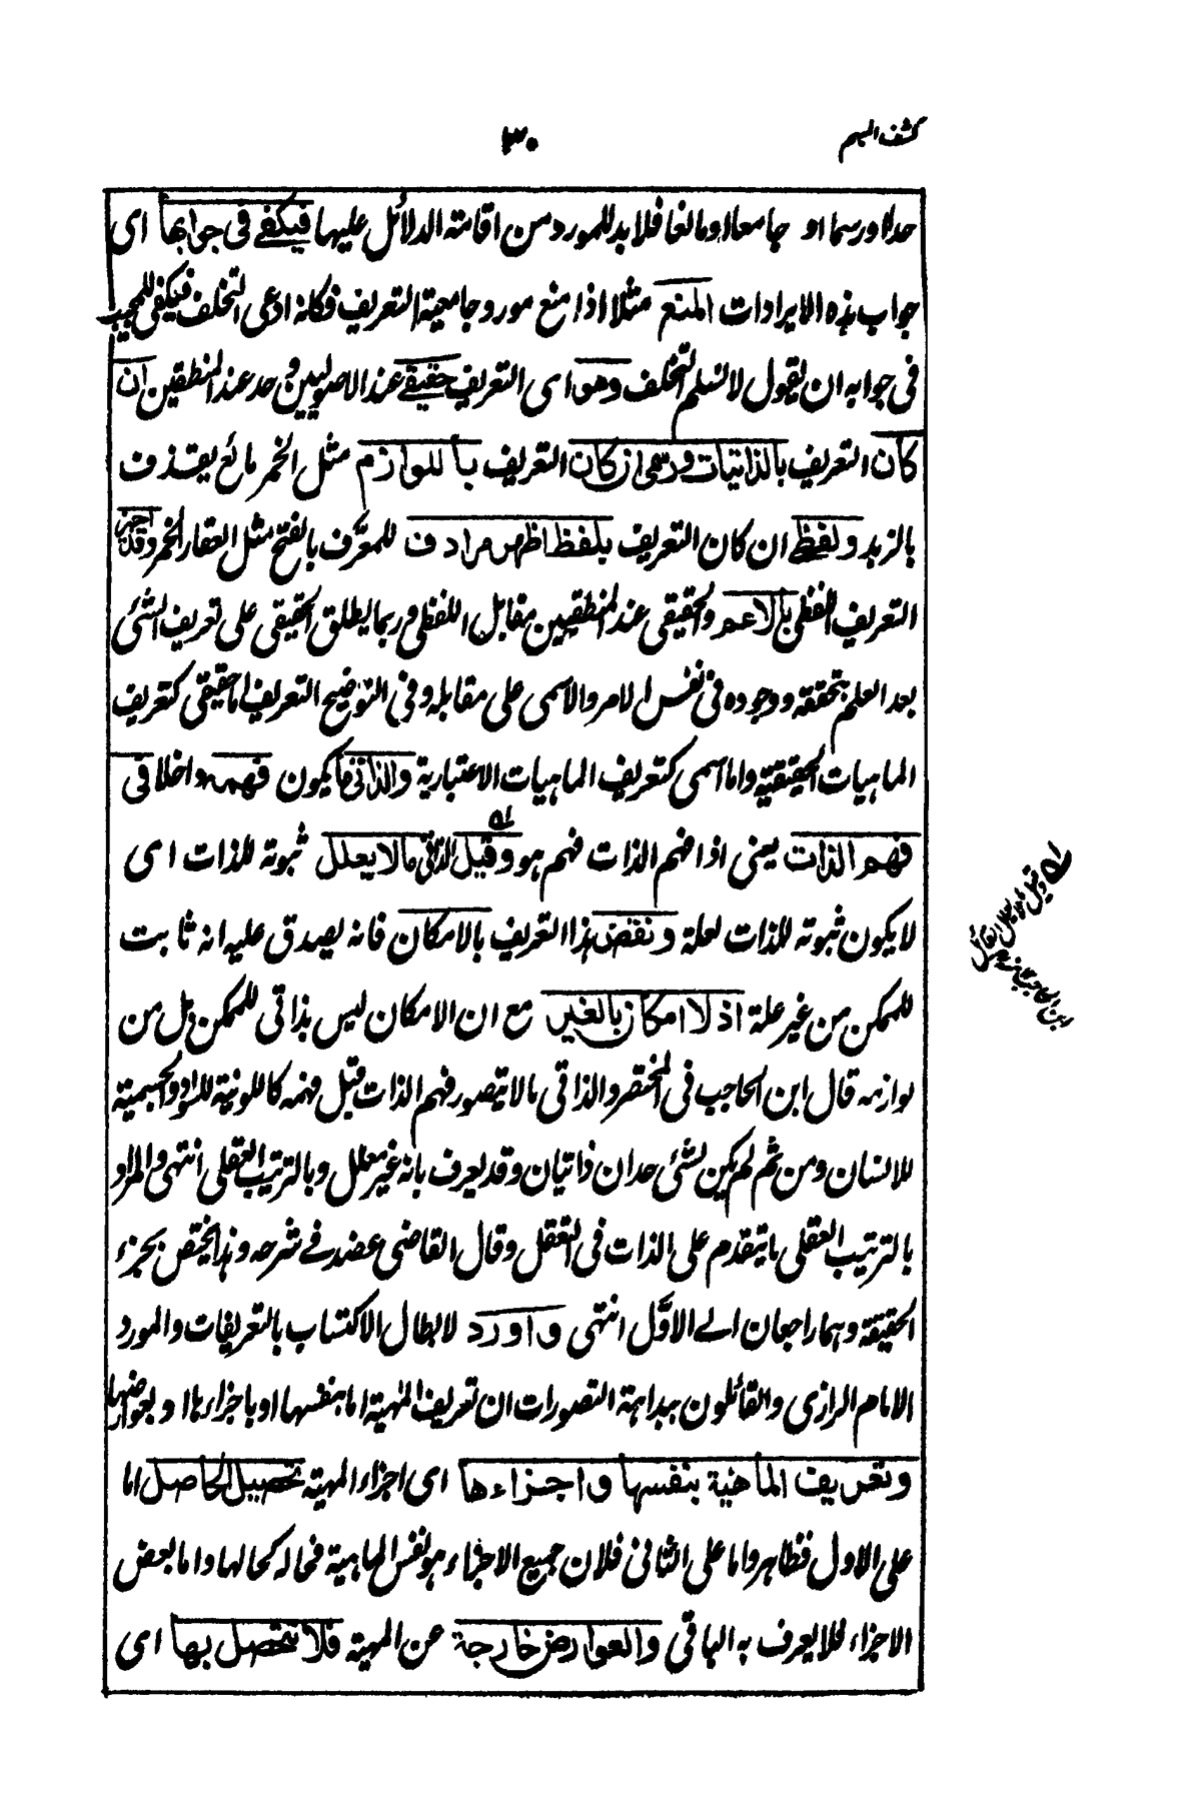 كشف المبهم
٣٠
حدا او رسما او جامعا او مانعا فلا بد للمورد من اقامة الدلائل عليها فيكفي فى جوابها اى
جواب هذه الايرادات المنع مثلا اذا منع مورد جامعية التعريف فكانه ادعى التخلف فيكفى للمجيب
فى جوابه ان يقول لا نسلم التخلف وهو اى التعريف حقيقى عند الاصوليين وحد عند المنطقيين ان
كان التعريف بالذاتيات ورسمى ان كان التعريف باللوازم مثل الخمر مائع يقذف
بالزبد ولفظى ان كان التعريف بلفظ اظهر مرادف للمعرَّف بالفتح مثل العقار الخمر وقد اجيز
التعريف اللفظى بالاعم والحقيقى عند المنطقيين مقابل اللفظى وربما يطلق الحقيقى على تعريف الشئ
بعد العلم بتحققه ووجوده فى نفس الامر والاسمى على مقابله وفى التوضيح التعريف اما حقيقى كتعريف
الماهيات الحقيقية واما اسمى كتعريف الماهيات الاعتبارية والذاتى ما يكون فهمه داخلا فى
فهم الذات يعنى اذا فهم الذات فهم هو وقيل الذاتى ما لا يعلل ثبوته للذات اى
لا يكون ثبوته للذات لعلة ونقض هذا التعريف بالامكان فانه يصدق عليه انه ثابت
للممكن من غير علة اذ لا امكان بالغير مع ان الامكان ليس بذاتى للممكن بل من
لوازمه قال ابن الحاجب فى المختصر والذاتى ما لا يتصور فهم الذات قبل فهمه كاللونية للسواد والجسمية
للانسان ومن ثم لم يكن لشئ حدان ذاتيان وقد يعرف بانه غير معلل وبالترتيب العقلى انتهى والمراد
بالترتيب العقلى ما يتقدم على الذات فى التعقل وقال القاضى عضد فى شرحه وهذا يختص بجزء
الحقيقة وهما راجعان الى الاوّل انتهى واورد لابطال الاكتساب بالتعريفات والمورد
الامام الرازى والقائلون ببداهة التصورات ان تعريف المهية اما بنفسها او باجزاءها او بعوارضها
وتعريف الماهية بنفسها واجزاءها اى اجزاء المهية تحصيل الحاصل اما
على الاول فظاهر واما على الثانى فلان جميع الاجزاء هو نفس الماهية فحاله كحالها واما بعض
الاجزاء فلا يعرف به الباقى والعوارض خارجة عن المهية فلا تتحصل بها اى
وقيل ما لا يعلل القائل
ابن الحاجب